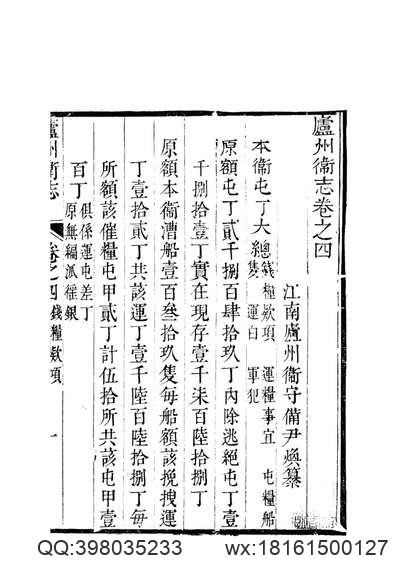 廬州衞志卷之四
江南廬州衞守備尹煥纂
錢糧欵項　運糧事宜　屯糧船
隻　運白　軍犯
本衞屯丁大總
原額屯丁貳千捌百肆拾玖丁內除逃絕屯丁壹
千捌拾壹丁實在現存壹千柒百陸拾捌丁
原額本衞漕船壹百叁拾玖隻每船額該挽拽運
丁壹拾貳丁共該運丁壹千陸百陸拾捌丁每
所額該催糧屯甲貳丁計伍拾所共該屯甲壹
百丁俱係運屯差丁
原無編派徭銀
廬州衞志　卷之四　錢糧欵項　一
QQ:398035233
wx:18161500127